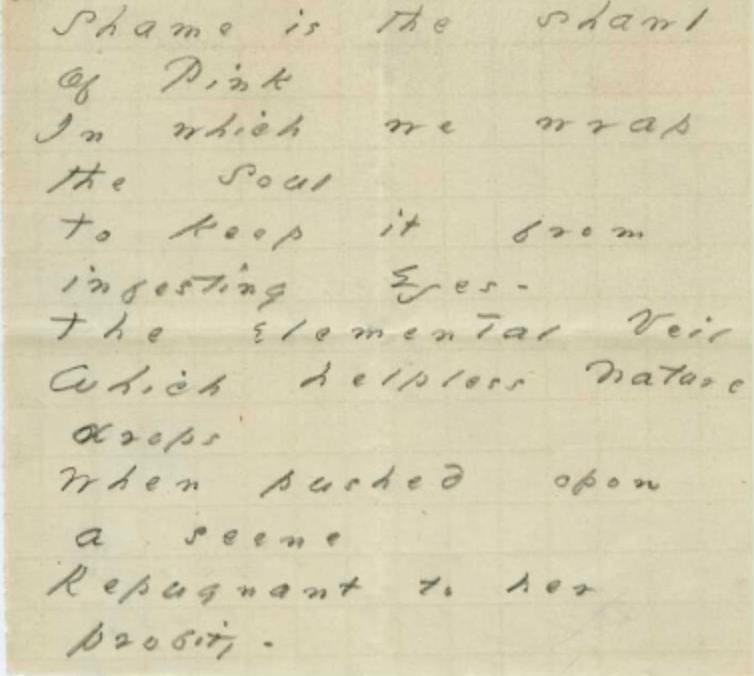 Shame is the shawl
Of Pink
In which we wrap
the Soul
To keep it from
infesting Eyes -
The Elemental Veil
Which helpless Nature
drops
When pushed opon
a scene
Repugnant to her
probity -